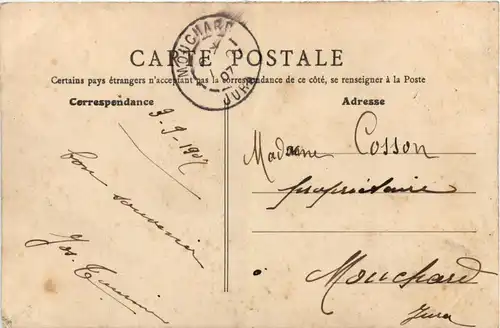 CARTE POSTALE
Certains pays étrangers n'acceptant pas la correspondance de ce côté, se renseigner à la Poste
Correspondance
Adresse
MOUCHARD
07
JURA
9-9-1907
bon souvenir
Jos.
Madame Cosson
propriétaire
Mouchard
Jura